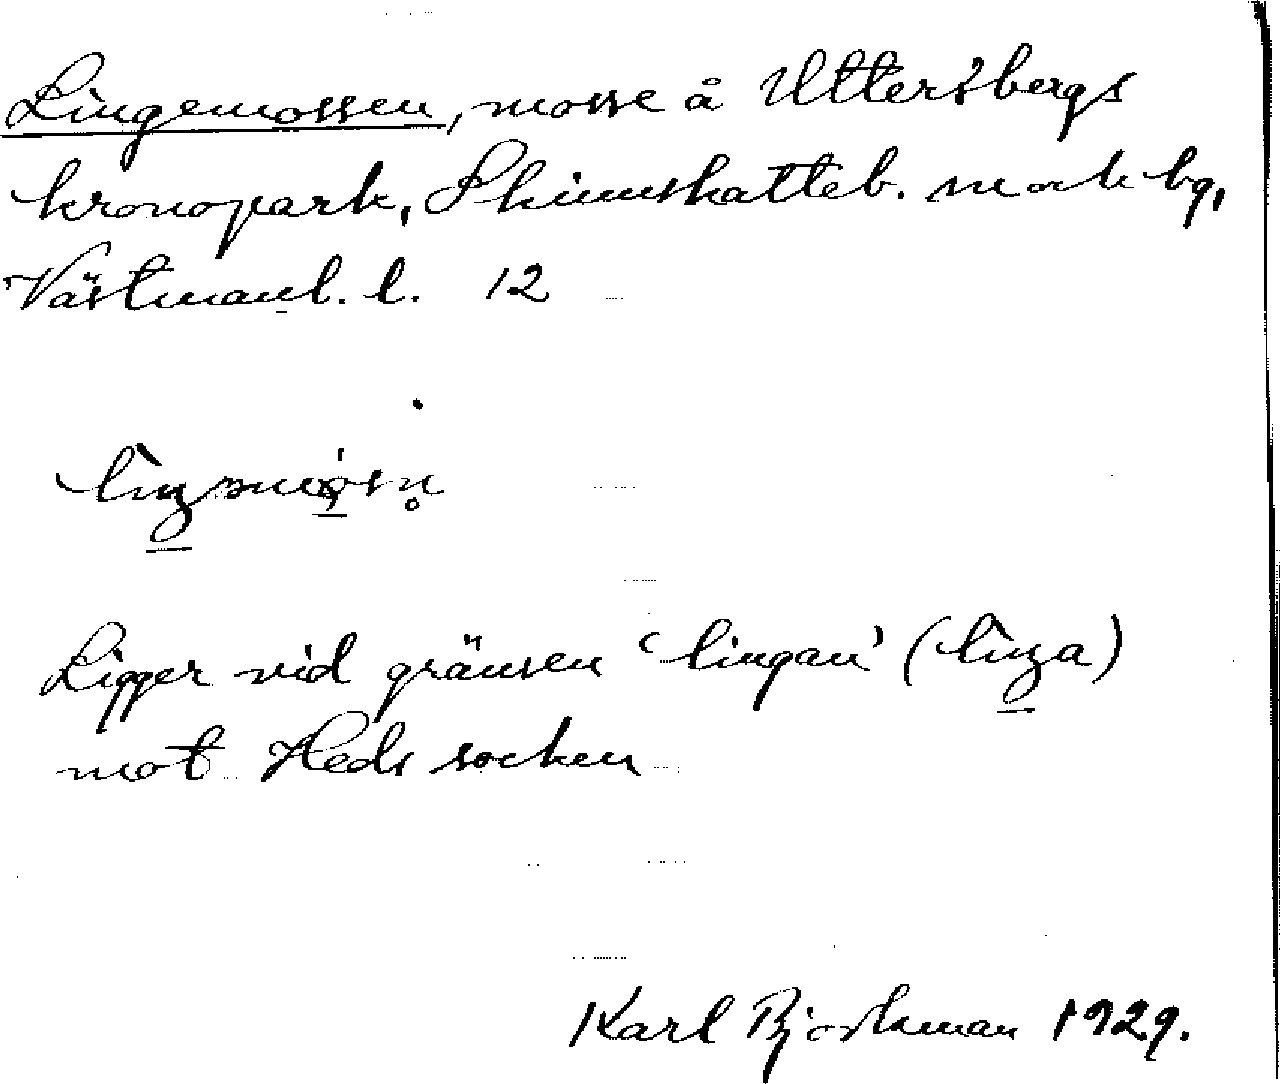 Lingemossen, mosse å Uttersbergs
kronopark, Skinnskatteb. sn och bg,
Västmanl. l. 12
Ligger vid gränsen 'lingan' (
mot Heds socken
Karl Björkman 1929.